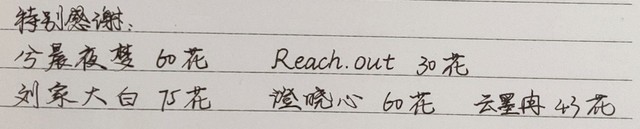 特别感谢:
兮晨夜梦 60花 Reach.out 30花
刘家大白 75花 澄晓心 60花 云墨冉 43花